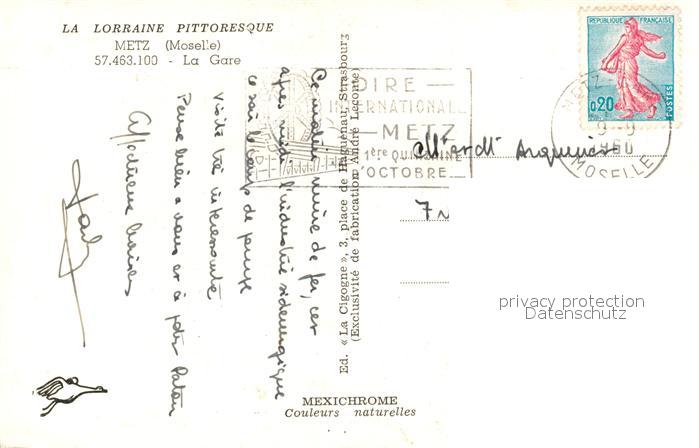 LA LORRAINE PITTORESQUE
METZ (Moselle)
57.463.100 - La Gare
REPUBLIQUE FRANÇAISE
0,20
POSTES
METZ
9-9
MOSELLE
FOIRE
INTERNATIONALE
METZ
1ère QUINZAINE
D'OCTOBRE
Ce matin, mine de fer, cet
après midi, l'industrie sidérurgique
Visite très intéressante
Pense bien à vous et à
Affectueux baisers
Ed. « La Cigogne », 3, place de Haguenau, Strasbourg
(Exclusivité de fabrication André Leconte)
7
privacy protection
Datenschutz
MEXICHROME
Couleurs naturelles